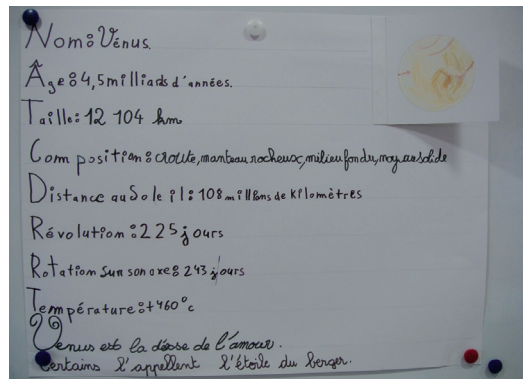 Nom : Vénus.
Âge : 4,5 milliads d'années.
Taille : 12 104 km
Composition : croute, manteau rocheux, milieu fondu, noyau solide
Distance au Soleil : 108 millions de kilomètres
Révolution : 225 jours
Rotation sur son axe : 243 jours
Température : +460°c
Venus est la désse de l'amour.
Certains l'appellent l'étoile du berger.